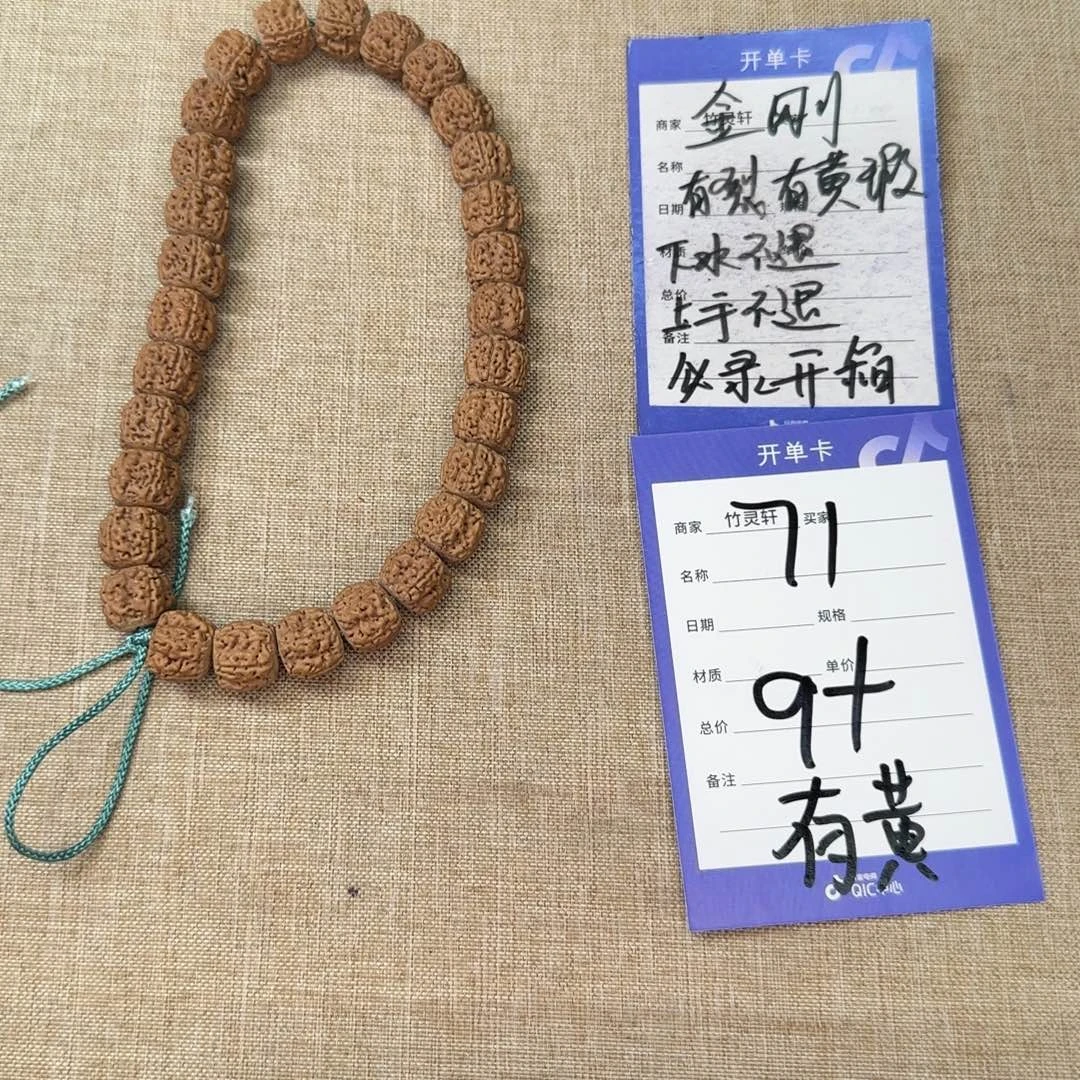 开单卡
商家 竹灵轩
金刚
名称
有裂 有黄 瑕
日期
下水不退
材质
总价
上手不退
备注
必录开箱
开单卡
商家 竹灵轩 买家
71
名称
日期 规格
材质 单价
9+
总价
备注
有黄
QIC中心